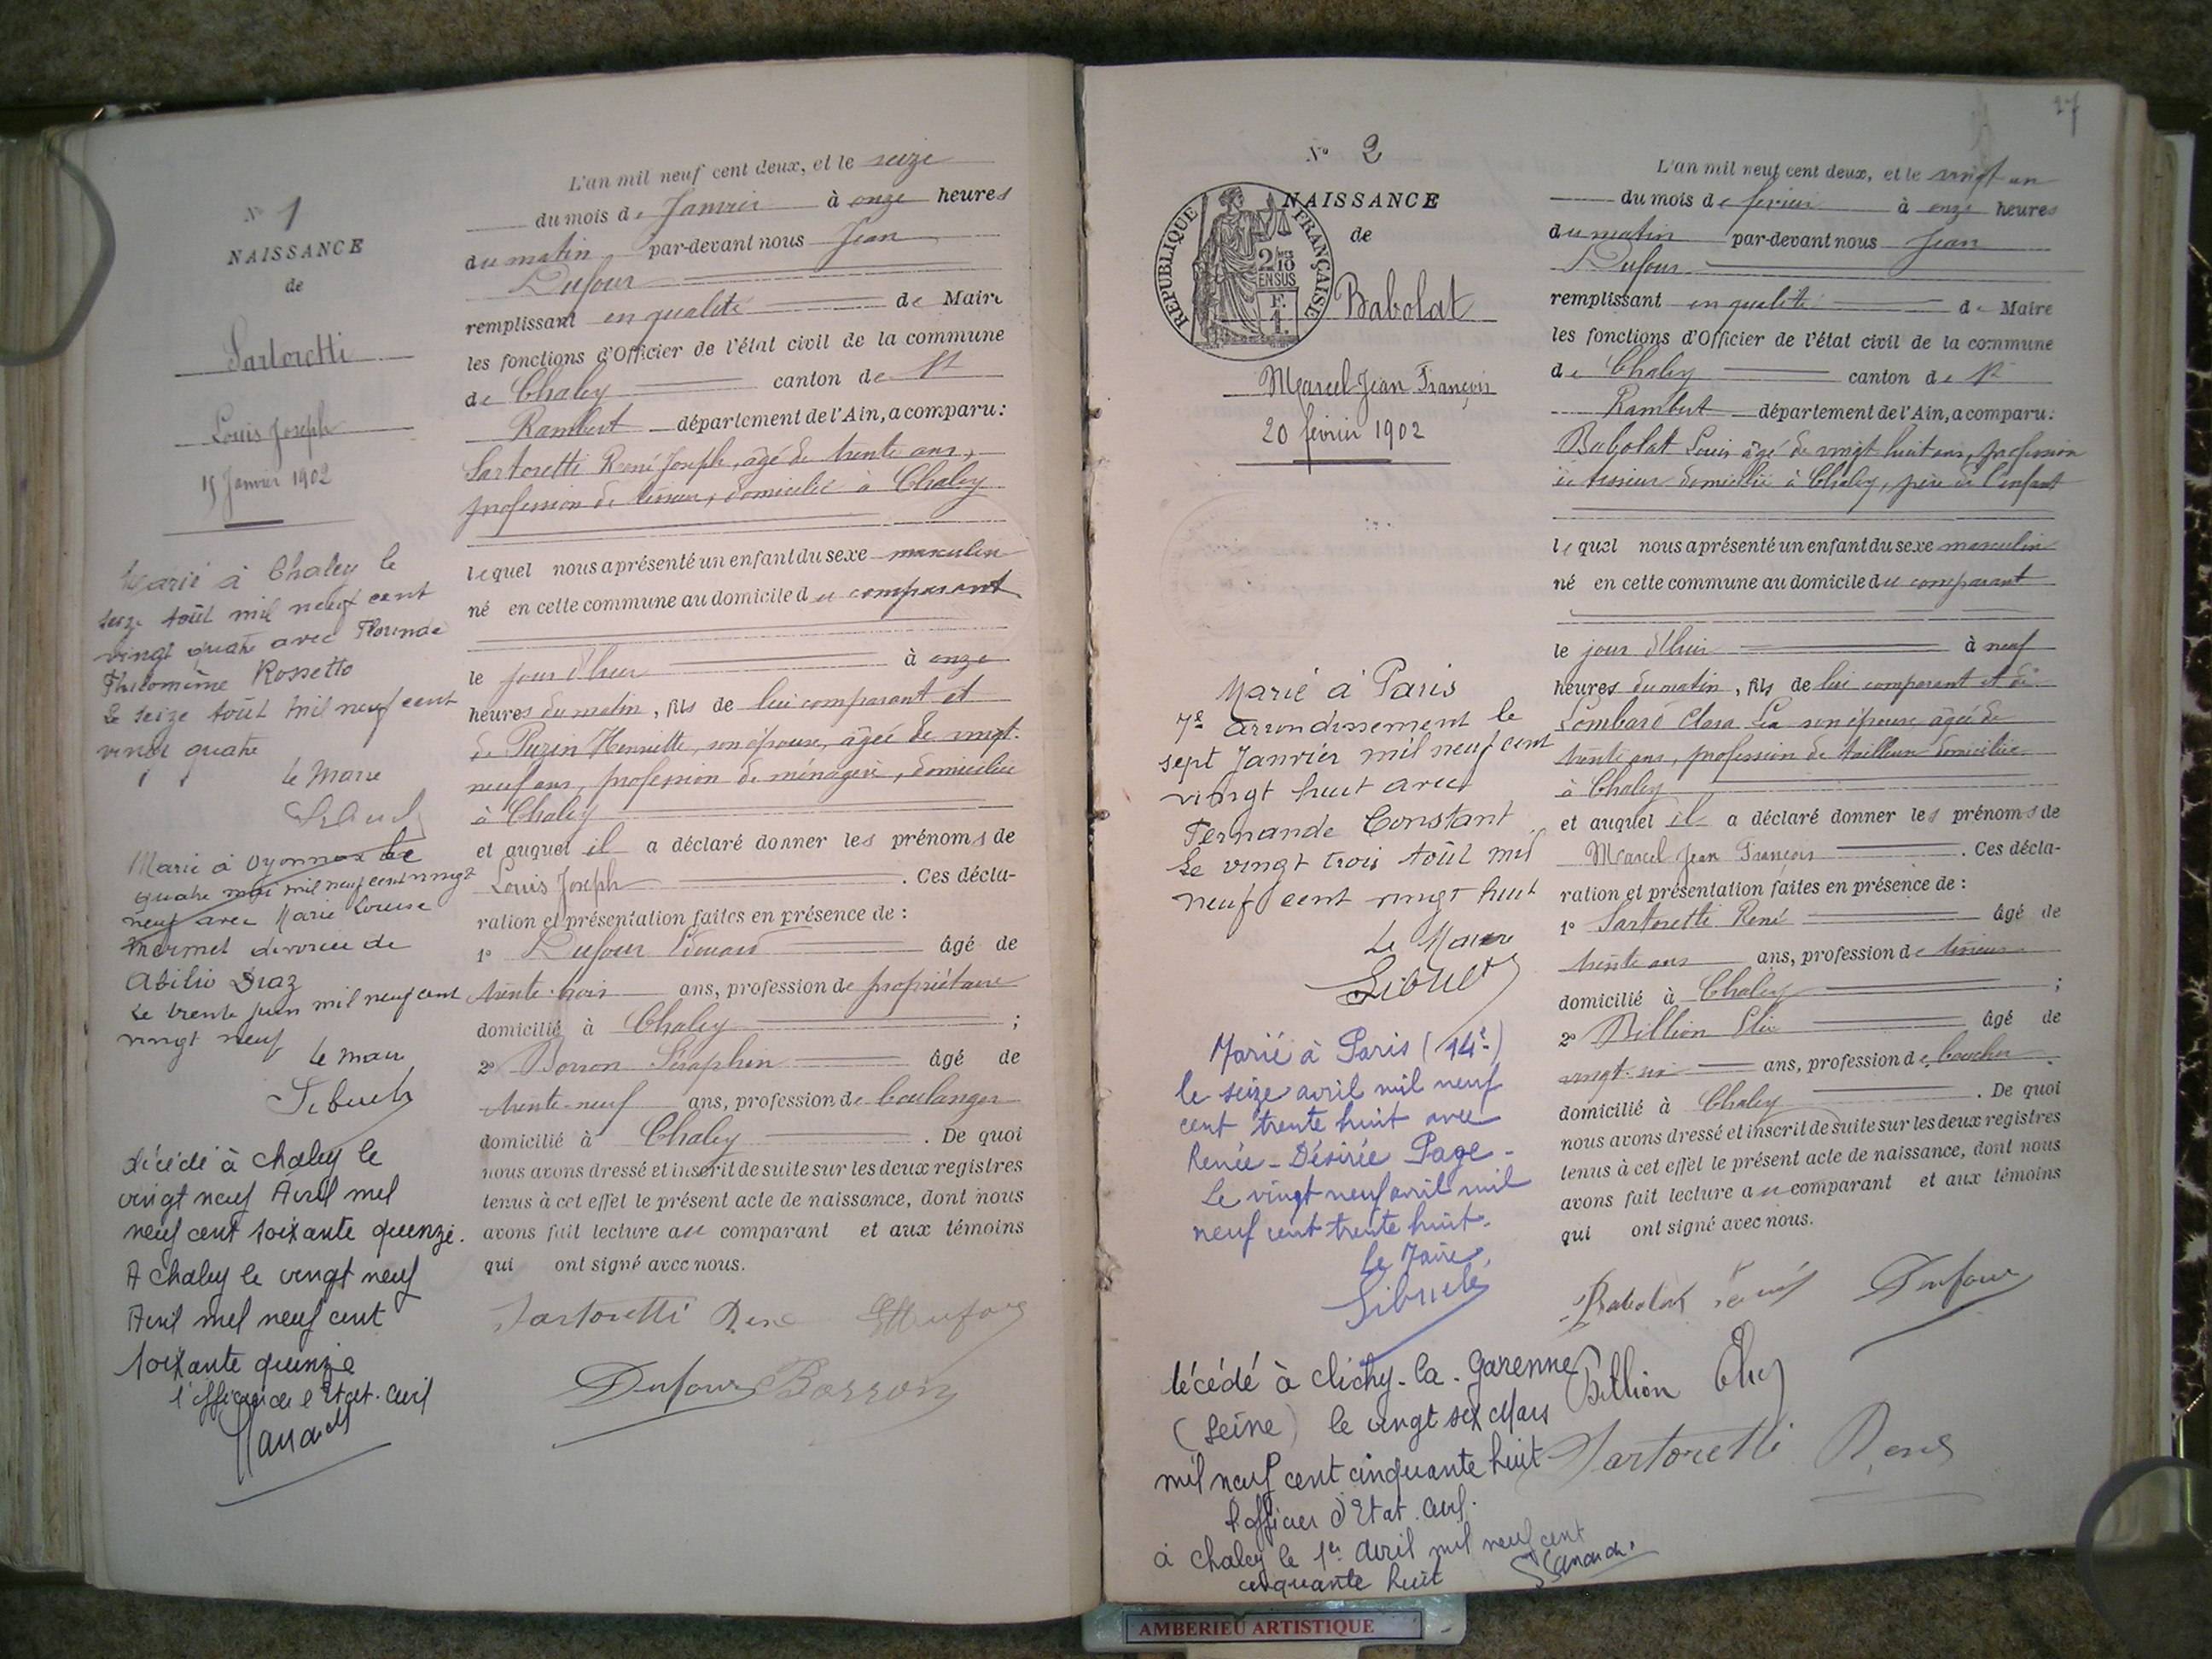 N° 1
NAISSANCE
de
Sartoretti
Louis Joseph
15 Janvier 1902
Marié à Chaley le
seize Août mil neuf cent
vingt quatre avec Florinde
Philomène Rossetto
Le seize Août mil neuf cent
vingt quatre
Le Maire
Marié à Oyonnax le
quatre mai mil neuf cent vingt
neuf avec Marie Louise
Mermet divorcée de
Abilio Diaz
Le trente juin mil neuf cent
vingt neuf
Le Maire
décédé à Chaley le
vingt neuf Avril mil
neuf cent soixante quinze.
A Chaley le vingt neuf
Avril mil neuf cent
soixante quinze
l'officier de l'Etat-Civil
L'an mil neuf cent deux, et le seize
du mois de Janvier à onze heures
du matin par-devant nous Jean
Dufour
remplissant en qualité de Maire
les fonctions d'Officier de l'état civil de la commune
de Chaley canton de St
Rambert département de l'Ain, a comparu:
Sartoretti René Joseph, âgé de trente ans,
profession de tisseur, domicilié à Chaley
lequel nous a présenté un enfant du sexe masculin
né en cette commune au domicile du comparant
le jour d'hier à onze
heures du matin, fils de lui comparant et
de Puzin Henriette, son épouse, âgée de vingt-
neuf ans, profession de ménagère, domiciliée
à Chaley
et auquel il a déclaré donner les prénoms de
Louis Joseph. Ces décla-
ration et présentation faites en présence de:
1° Dufour Edouard âgé de
trente-trois ans, profession de propriétaire
domicilié à Chaley;
2° Borron Séraphin âgé de
trente-neuf ans, profession de boulanger
domicilié à Chaley. De quoi
nous avons dressé et inscrit de suite sur les deux registres
tenus à cet effet le présent acte de naissance, dont nous
avons fait lecture au comparant et aux témoins
qui ont signé avec nous.
Sartoretti René
Dufour Borron
27
N° 2
NAISSANCE
de
REPUBLIQUE FRANÇAISE
2/10
EN SUS
F.
1.
Babolat
Marcel Jean François
20 février 1902
Marié à Paris
7e Arrondissement le
sept Janvier mil neuf cent
vingt huit avec
Fernande Constant
Le vingt trois Août mil
neuf cent vingt huit
Le Maire
Marié à Paris (14e)
le seize avril mil neuf
cent trente huit avec
Renée-Désirée Page-
Le vingt neuf avril mil
neuf cent trente huit.
Le Maire,
décédé à Clichy-la-Garenne
(Seine) le vingt six Mars
mil neuf cent cinquante huit
l'officier d'Etat-Civil.
à Chaley le 1er Avril mil neuf cent
cinquante huit
L'an mil neuf cent deux, et le vingt un
du mois de février à onze heures
du matin par-devant nous Jean
Dufour
remplissant en qualité de Maire
les fonctions d'Officier de l'état civil de la commune
de Chaley canton de St
Rambert département de l'Ain, a comparu:
Babolat Louis âgé de vingt huit ans, profession
de tisseur domicilié à Chaley, père de l'enfant
lequel nous a présenté un enfant du sexe masculin
né en cette commune au domicile du comparant
le jour d'hier à neuf
heures du matin, fils de lui comparant et de
Lombard Clara Léa son épouse âgée de
trente ans, profession de tailleuse domiciliée
à Chaley
et auquel il a déclaré donner les prénoms de
Marcel Jean François. Ces décla-
ration et présentation faites en présence de:
1° Sartoretti René âgé de
trente ans ans, profession de tisseur
domicilié à Chaley;
2° Billion Elie âgé de
vingt-six ans, profession de boucher
domicilié à Chaley. De quoi
nous avons dressé et inscrit de suite sur les deux registres
tenus à cet effet le présent acte de naissance, dont nous
avons fait lecture au comparant et aux témoins
qui ont signé avec nous.
Babolat Louis Dufour
Billion Elie
Sartoretti René
AMBERIEU ARTISTIQUE